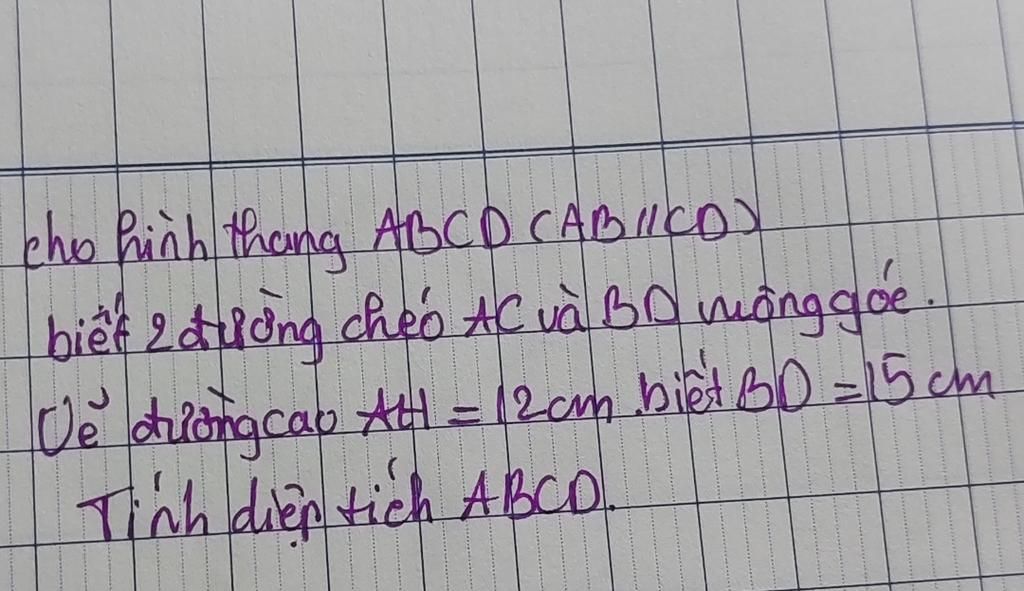 cho hình thang ABCD (AB//CD)
biết 2 đường chéo AC và BD vuông góc.
Vẽ đường cao AH = 12 cm. biết BD = 15 cm
Tính diện tích ABCD.